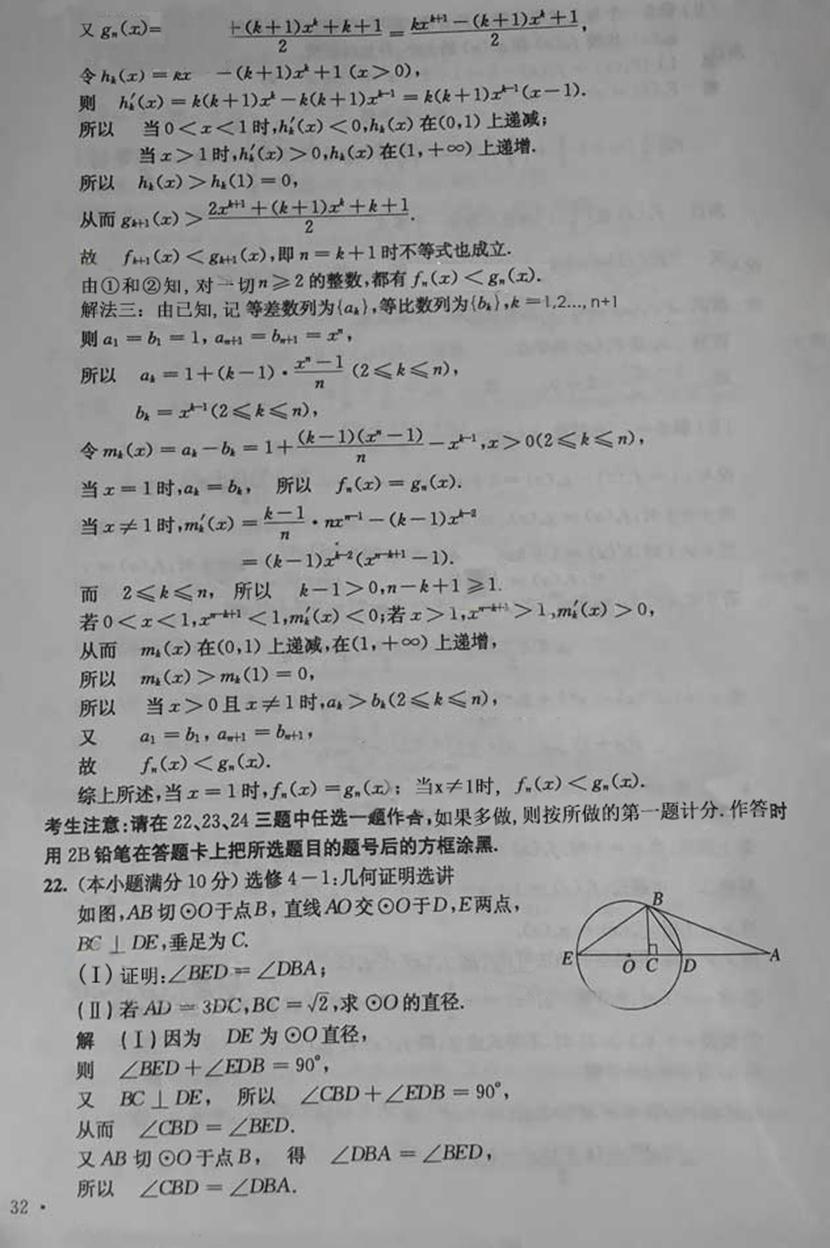 又 gₙ(x)= +(k+1)xᵏ+k+1 / 2 = kxᵏ⁺¹−(k+1)xᵏ+1 / 2,
令 hₖ(x) = kx −(k+1)xᵏ+1 (x>0),
则 hₖ′(x) = k(k+1)xᵏ−k(k+1)xᵏ⁻¹ = k(k+1)xᵏ⁻¹(x−1).
所以 当0<x<1时,hₖ′(x)<0,hₖ(x)在(0,1)上递减;
当x>1时,hₖ′(x)>0,hₖ(x)在(1,+∞)上递增.
所以 hₖ(x)>hₖ(1)=0,
从而 gₖ₊₁(x) > 2xᵏ⁺¹+(k+1)xᵏ+k+1 / 2.
故 fₖ₊₁(x)<gₖ₊₁(x),即n=k+1时不等式也成立.
由①和②知,对一切n≥2的整数,都有fₙ(x)<gₙ(x).
解法三: 由已知,记 等差数列为{aₖ},等比数列为{bₖ},k=1,2...,n+1
则a₁=b₁=1,aₙ₊₁=bₙ₊₁=xⁿ,
所以 aₖ=1+(k−1)·xⁿ−1 / n (2≤k≤n),
bₖ=xᵏ⁻¹(2≤k≤n),
令mₖ(x)=aₖ−bₖ=1+(k−1)(xⁿ−1) / n −xᵏ⁻¹,x>0(2≤k≤n),
当x=1时,aₖ=bₖ, 所以 fₙ(x)=gₙ(x).
当x≠1时,mₖ′(x)=k−1 / n ·nxⁿ⁻¹−(k−1)xᵏ⁻²
=(k−1)xᵏ⁻²(xⁿ⁻ᵏ⁺¹−1).
而 2≤k≤n, 所以 k−1>0,n−k+1≥1.
若0<x<1,xⁿ⁻ᵏ⁺¹<1,mₖ′(x)<0;若x>1,xⁿ⁻ᵏ⁺¹>1,mₖ′(x)>0,
从而 mₖ(x)在(0,1)上递减,在(1,+∞)上递增,
所以 mₖ(x)>mₖ(1)=0,
所以 当x>0且x≠1时,aₖ>bₖ(2≤k≤n),
又 a₁=b₁,aₙ₊₁=bₙ₊₁,
故 fₙ(x)<gₙ(x).
综上所述,当x=1时,fₙ(x)=gₙ(x); 当x≠1时, fₙ(x)<gₙ(x).
考生注意:请在22、23、24三题中任选一题作答,如果多做,则按所做的第一题计分.作答时
用2B铅笔在答题卡上把所选题目的题号后的方框涂黑.
22.(本小题满分10分)选修4−1:几何证明选讲
如图,AB切⊙O于点B,直线AO交⊙O于D,E两点,
BC⊥DE,垂足为C.
(Ⅰ)证明:∠BED=∠DBA;
(Ⅱ)若AD=3DC,BC=√2,求⊙O的直径.
B
E O C D A
解 (Ⅰ)因为 DE为⊙O直径,
则 ∠BED+∠EDB=90°,
又 BC⊥DE, 所以 ∠CBD+∠EDB=90°,
从而 ∠CBD=∠BED.
又AB切⊙O于点B, 得 ∠DBA=∠BED,
所以 ∠CBD=∠DBA.
32 ·